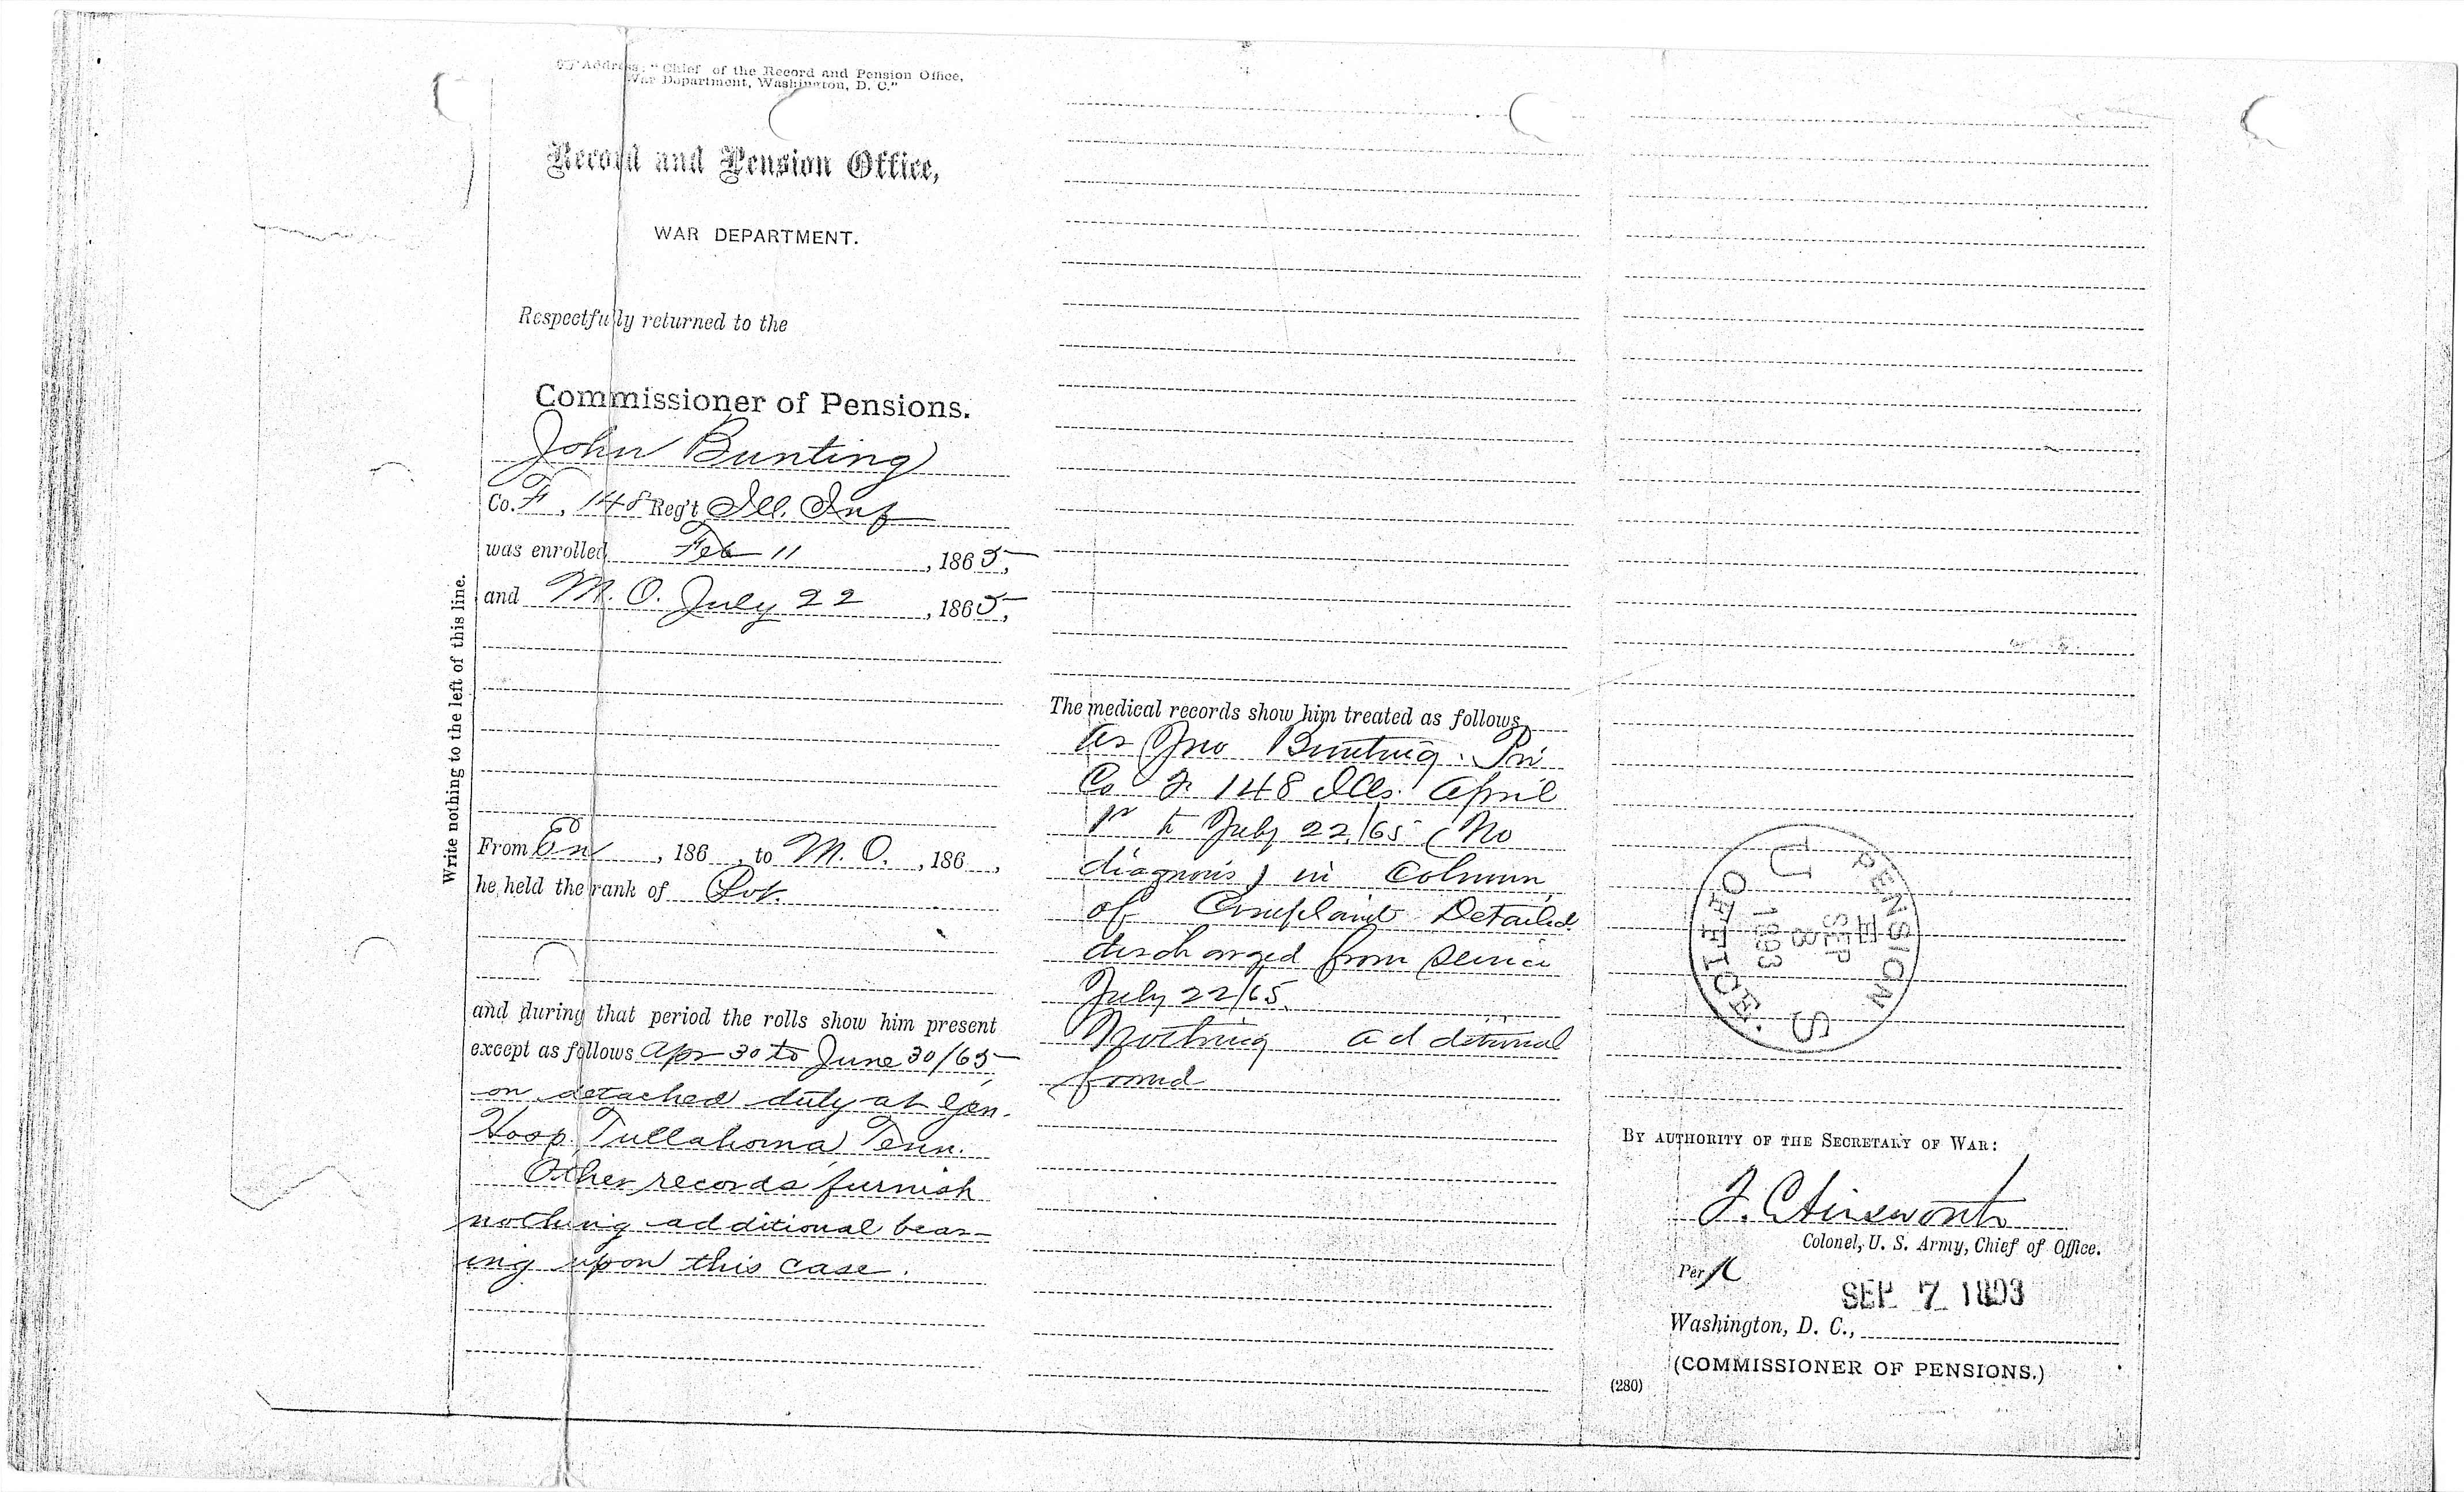 Address: "Chief of the Record and Pension Office,
War Department, Washington, D. C."
Record and Pension Office,
WAR DEPARTMENT.
Respectfully returned to the
Commissioner of Pensions.
John Bunting
Co. F, 148 Reg't Ill. Inf
was enrolled Feb 11, 1865,
and M. O. July 22, 1865,
Write nothing to the left of this line.
From En, 186 , to M. O., 186 ,
he held the rank of Pvt.
and during that period the rolls show him present
except as follows Apr 30 to June 30/65
on detached duty at Gen.
Hosp. Tullahoma, Tenn.
Other records furnish
nothing additional bear-
ing upon this case.
The medical records show him treated as follows
As Jno Bunting. Pri
Co F 148 Ills. April
1st to July 22/65 (No
diagnosis) in Column
of Complaint Detailed
discharged from service
July 22/65.
Nothing additional
found
PENSION
U. S.
SEP
8
1893
OFFICE.
BY AUTHORITY OF THE SECRETARY OF WAR:
F. C. Ainsworth
Colonel, U. S. Army, Chief of Office.
Per
SEP 7 1893
Washington, D. C.,
(COMMISSIONER OF PENSIONS.)
(280)